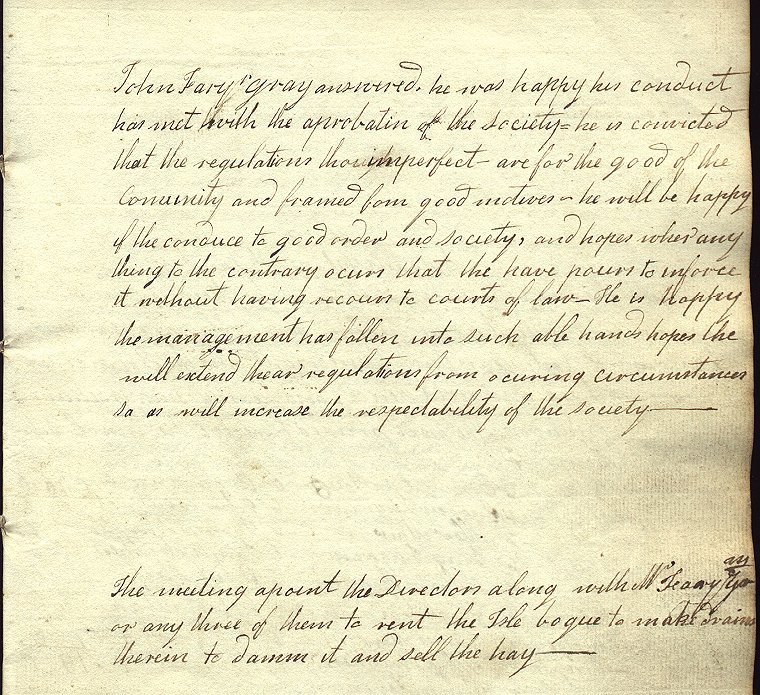 John Fary gray answered, he was happy his conduct
has met with the aprobatin of the society = he is convicted
that the regulations tho imperfect - are for the good of the
Comunity and framed fom good motives - he will be happy
if the conduce to good order and society, and hopes when any
thing to the contrary ocurs that the have pours to inforce
it without having recours to courts of law - He is happy
the management has fallen into such able hands hopes the
will extend thear regulations from ocuring circumstances
so as will increase the respectability of the society
The meeting apoint the Directors along with Mr
or any three of them to rent the Isle bogue to make drains
therein to damm it and sell the hay